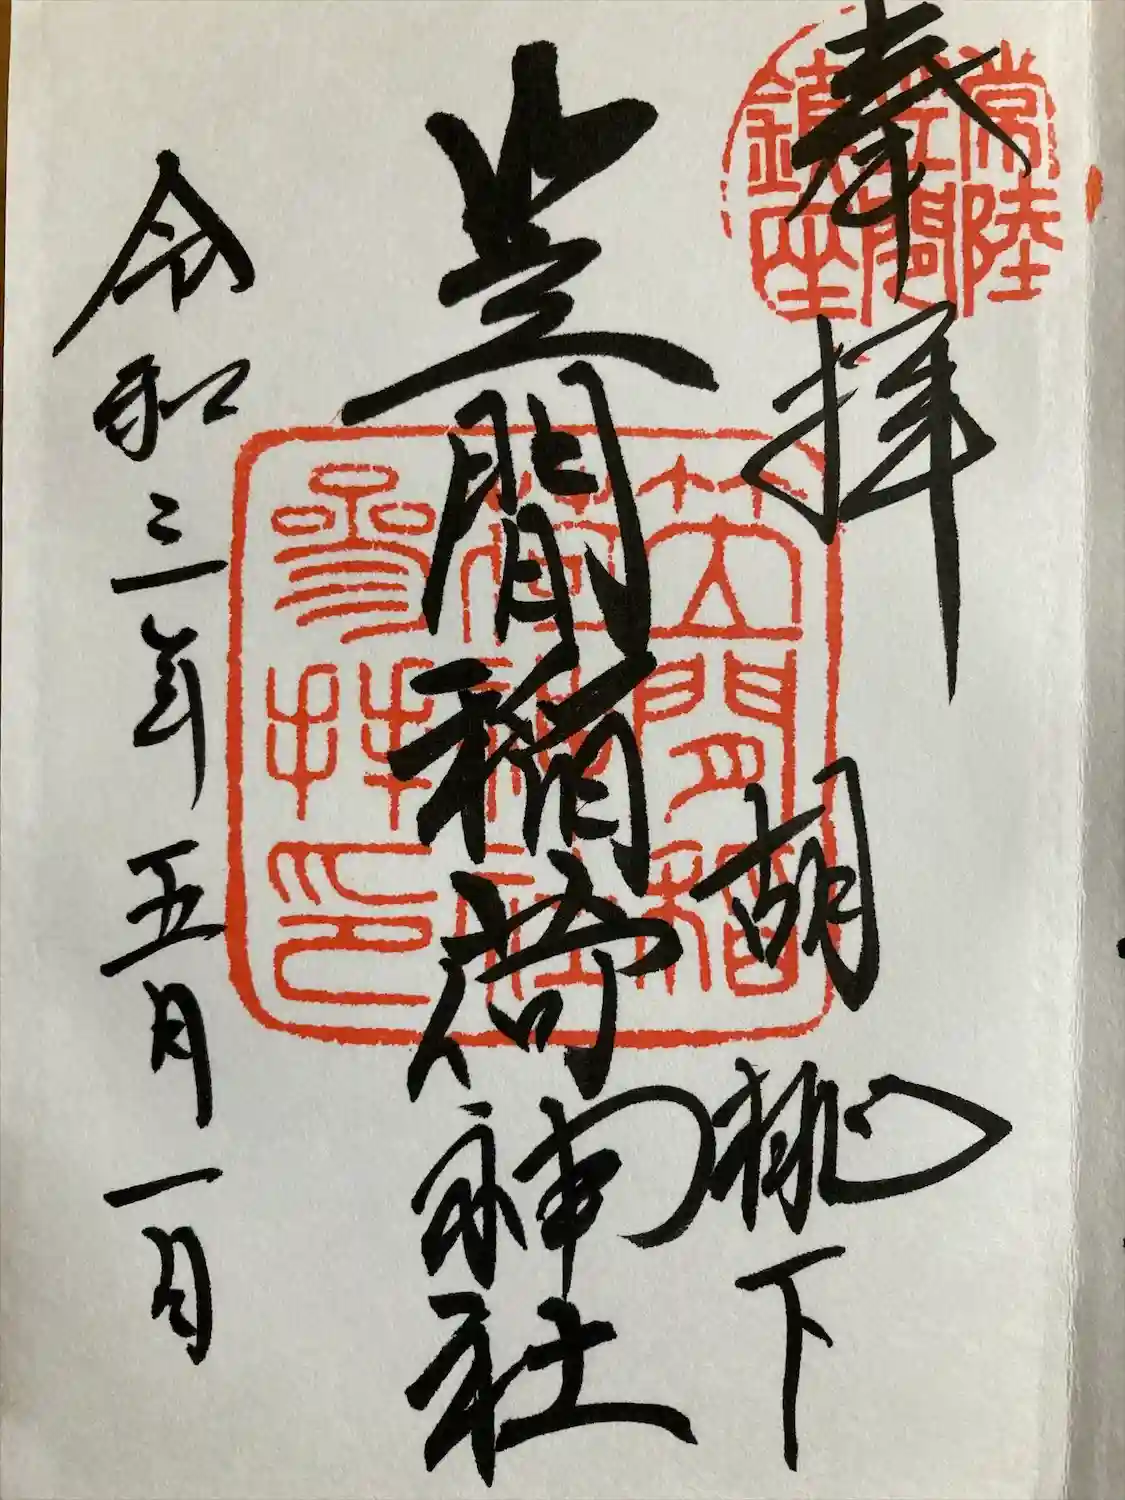 奉拝
胡桃下
笠間稲荷神社
令和三年五月一日
常陸
笠間
鎮座
笠間稲
荷神社
参拝印